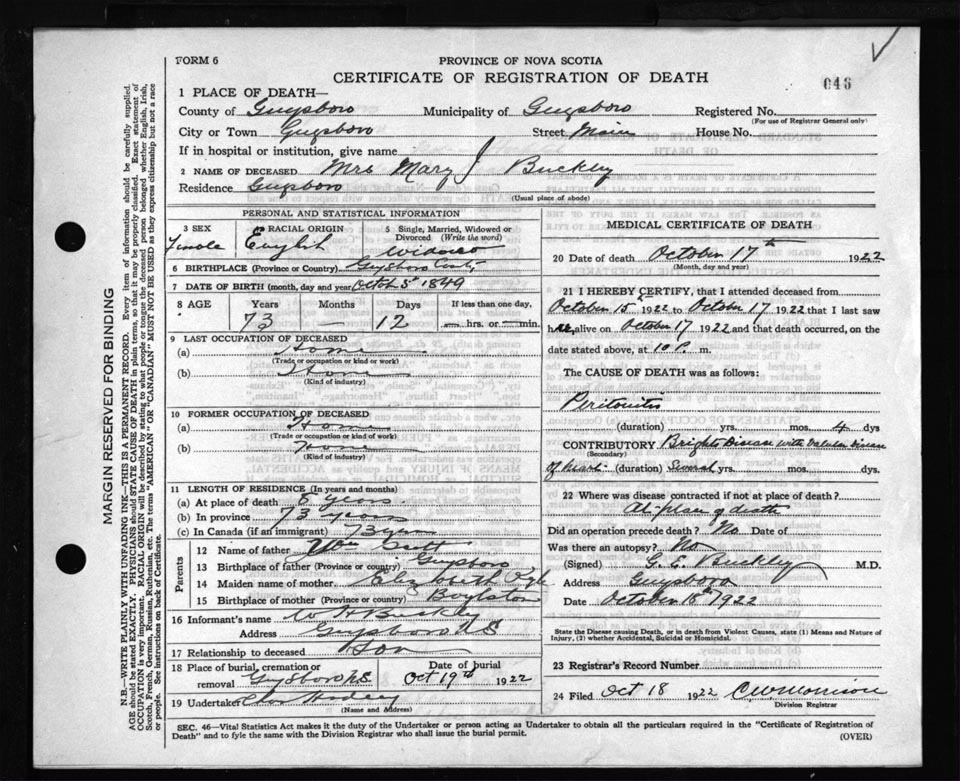 FORM 6
PROVINCE OF NOVA SCOTIA
CERTIFICATE OF REGISTRATION OF DEATH
046
1 PLACE OF DEATH—
County of Guysboro Municipality of Guysboro Registered No.
(For use of Registrar General only)
City or Town Guysboro Street Main House No.
If in hospital or institution, give name
2 NAME OF DECEASED Mrs Mary J Buckley
Residence Guysboro
(Usual place of abode)
PERSONAL AND STATISTICAL INFORMATION
3 SEX Female
4 RACIAL ORIGIN English
5 Single, Married, Widowed or Divorced (Write the word) Widowed
6 BIRTHPLACE (Province or Country) Guysboro
7 DATE OF BIRTH (month, day and year) 5 1849
8 AGE Years Months Days If less than one day,
73 — 12 — hrs. or — min.
9 LAST OCCUPATION OF DECEASED
(a) Home
(Trade or occupation or kind or work)
(b) Home
(Kind of industry)
10 FORMER OCCUPATION OF DECEASED
(a) Home
(Trade or occupation or kind or work)
(b) Home
(Kind of industry)
11 LENGTH OF RESIDENCE (In years and months)
(a) At place of death 8 years
(b) In province 73 years
(c) In Canada (if an immigrant) 73 years
Parents
12 Name of father Wm Scott
13 Birthplace of father (Province or country) Guysboro
14 Maiden name of mother Elizabeth
15 Birthplace of mother (Province or country) Boylston
16 Informant's name W H Buckley
Address Guysboro NS
17 Relationship to deceased Son
18 Place of burial, cremation or removal Guysboro N.S. Date of burial Oct 19th 1922
19 Undertaker
(Name and Address)
MEDICAL CERTIFICATE OF DEATH
20 Date of death October 17th 1922
(Month, day and year)
21 I HEREBY CERTIFY, that I attended deceased from
October 15th 1922 to October 17 1922 that I last saw
her alive on October 17 1922 and that death occurred, on the
date stated above, at 10 P. m.
The CAUSE OF DEATH was as follows:
Peritonitis
(duration) yrs. mos. 4 dys
CONTRIBUTORY Brights Disease with Valvular Disease
(Secondary)
of heart (duration) Several yrs. mos. dys.
22 Where was disease contracted if not at place of death?
At place of death
Did an operation precede death? No Date of
Was there an autopsy? No
(Signed) G. E. Buckley M.D.
Address Guysboro
Date October 18th 1922
State the Disease causing Death, or in death from Violent Causes, state (1) Means and Nature of
Injury, (2) whether Accidental, Suicidal or Homicidal.
23 Registrar's Record Number
24 Filed Oct 18 1922 C W Morrison
Division Registrar
SEC. 46—Vital Statistics Act makes it the duty of the Undertaker or person acting as Undertaker to obtain all the particulars required in the "Certificate of Registration of
Death" and to fyle the same with the Division Registrar who shall issue the burial permit.
(OVER)
MARGIN RESERVED FOR BINDING
N.B.—WRITE PLAINLY WITH UNFADING INK—THIS IS A PERMANENT RECORD. Every item of information should be carefully supplied.
AGE should be stated EXACTLY. PHYSICIANS should STATE CAUSE OF DEATH in plain terms, so that it may be properly classified. Exact statement of
OCCUPATION is very important. RACIAL ORIGIN will be described by stating to what people or tongue the deceased person belonged whether English, Irish,
Scotch, French, German, Russian, Ruthenian, etc. The terms "AMERICAN" OR "CANADIAN" MUST NOT BE USED as they express citizenship but not a race
or people. See instructions on back of Certificate.